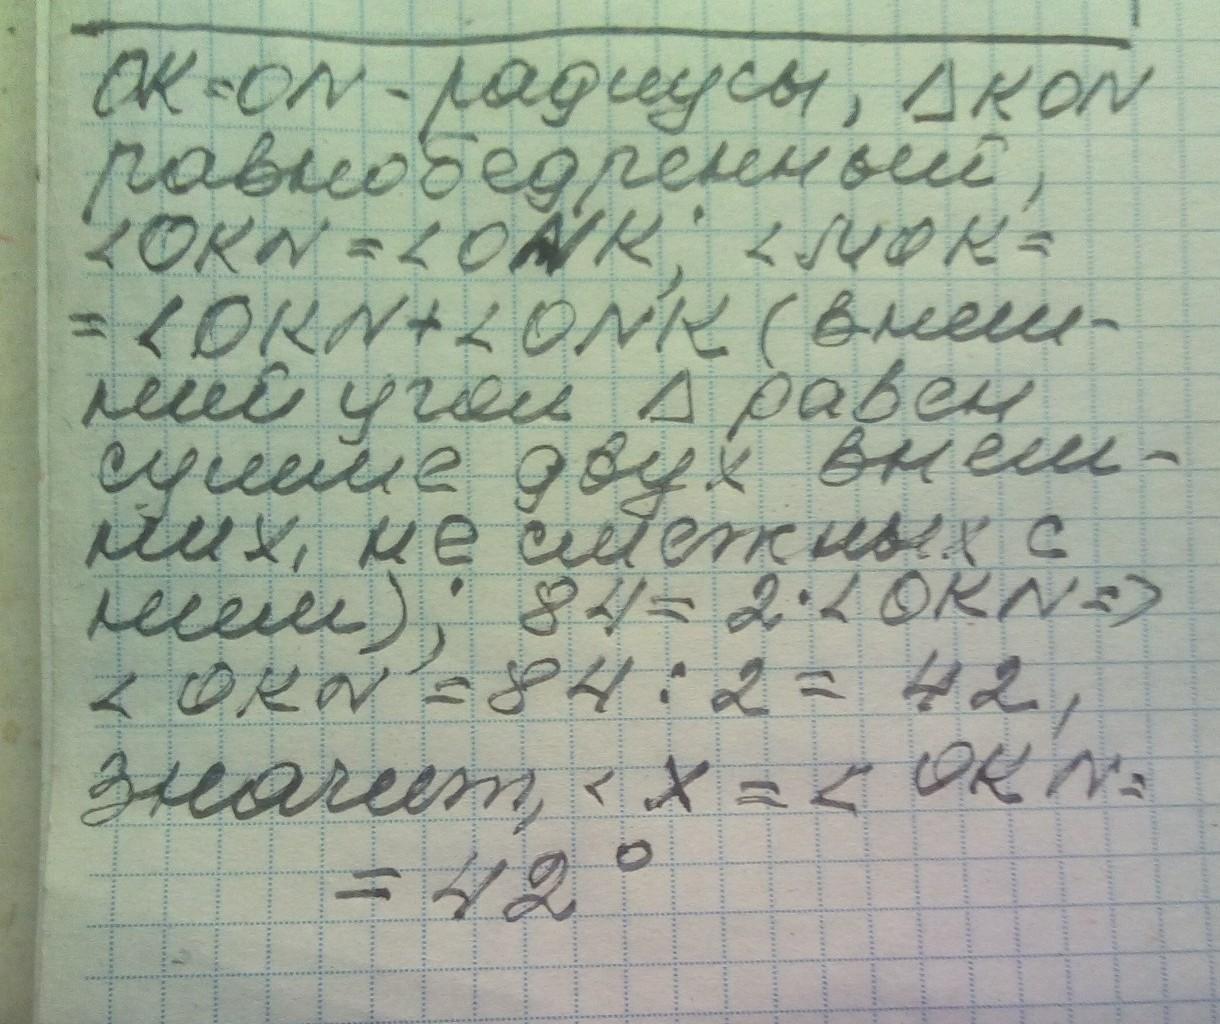 OK=ON - радиусы, △KON
равнобедренный,
∠OKN=∠ONK; ∠MOK=
=∠OKN+∠ONK (внеш-
ний угол △ равен
сумме двух внеш-
них, не смежных с
ним); 84=2·∠OKN=>
∠OKN=84:2=42,
значит, ∠x=∠OKN=
=42°